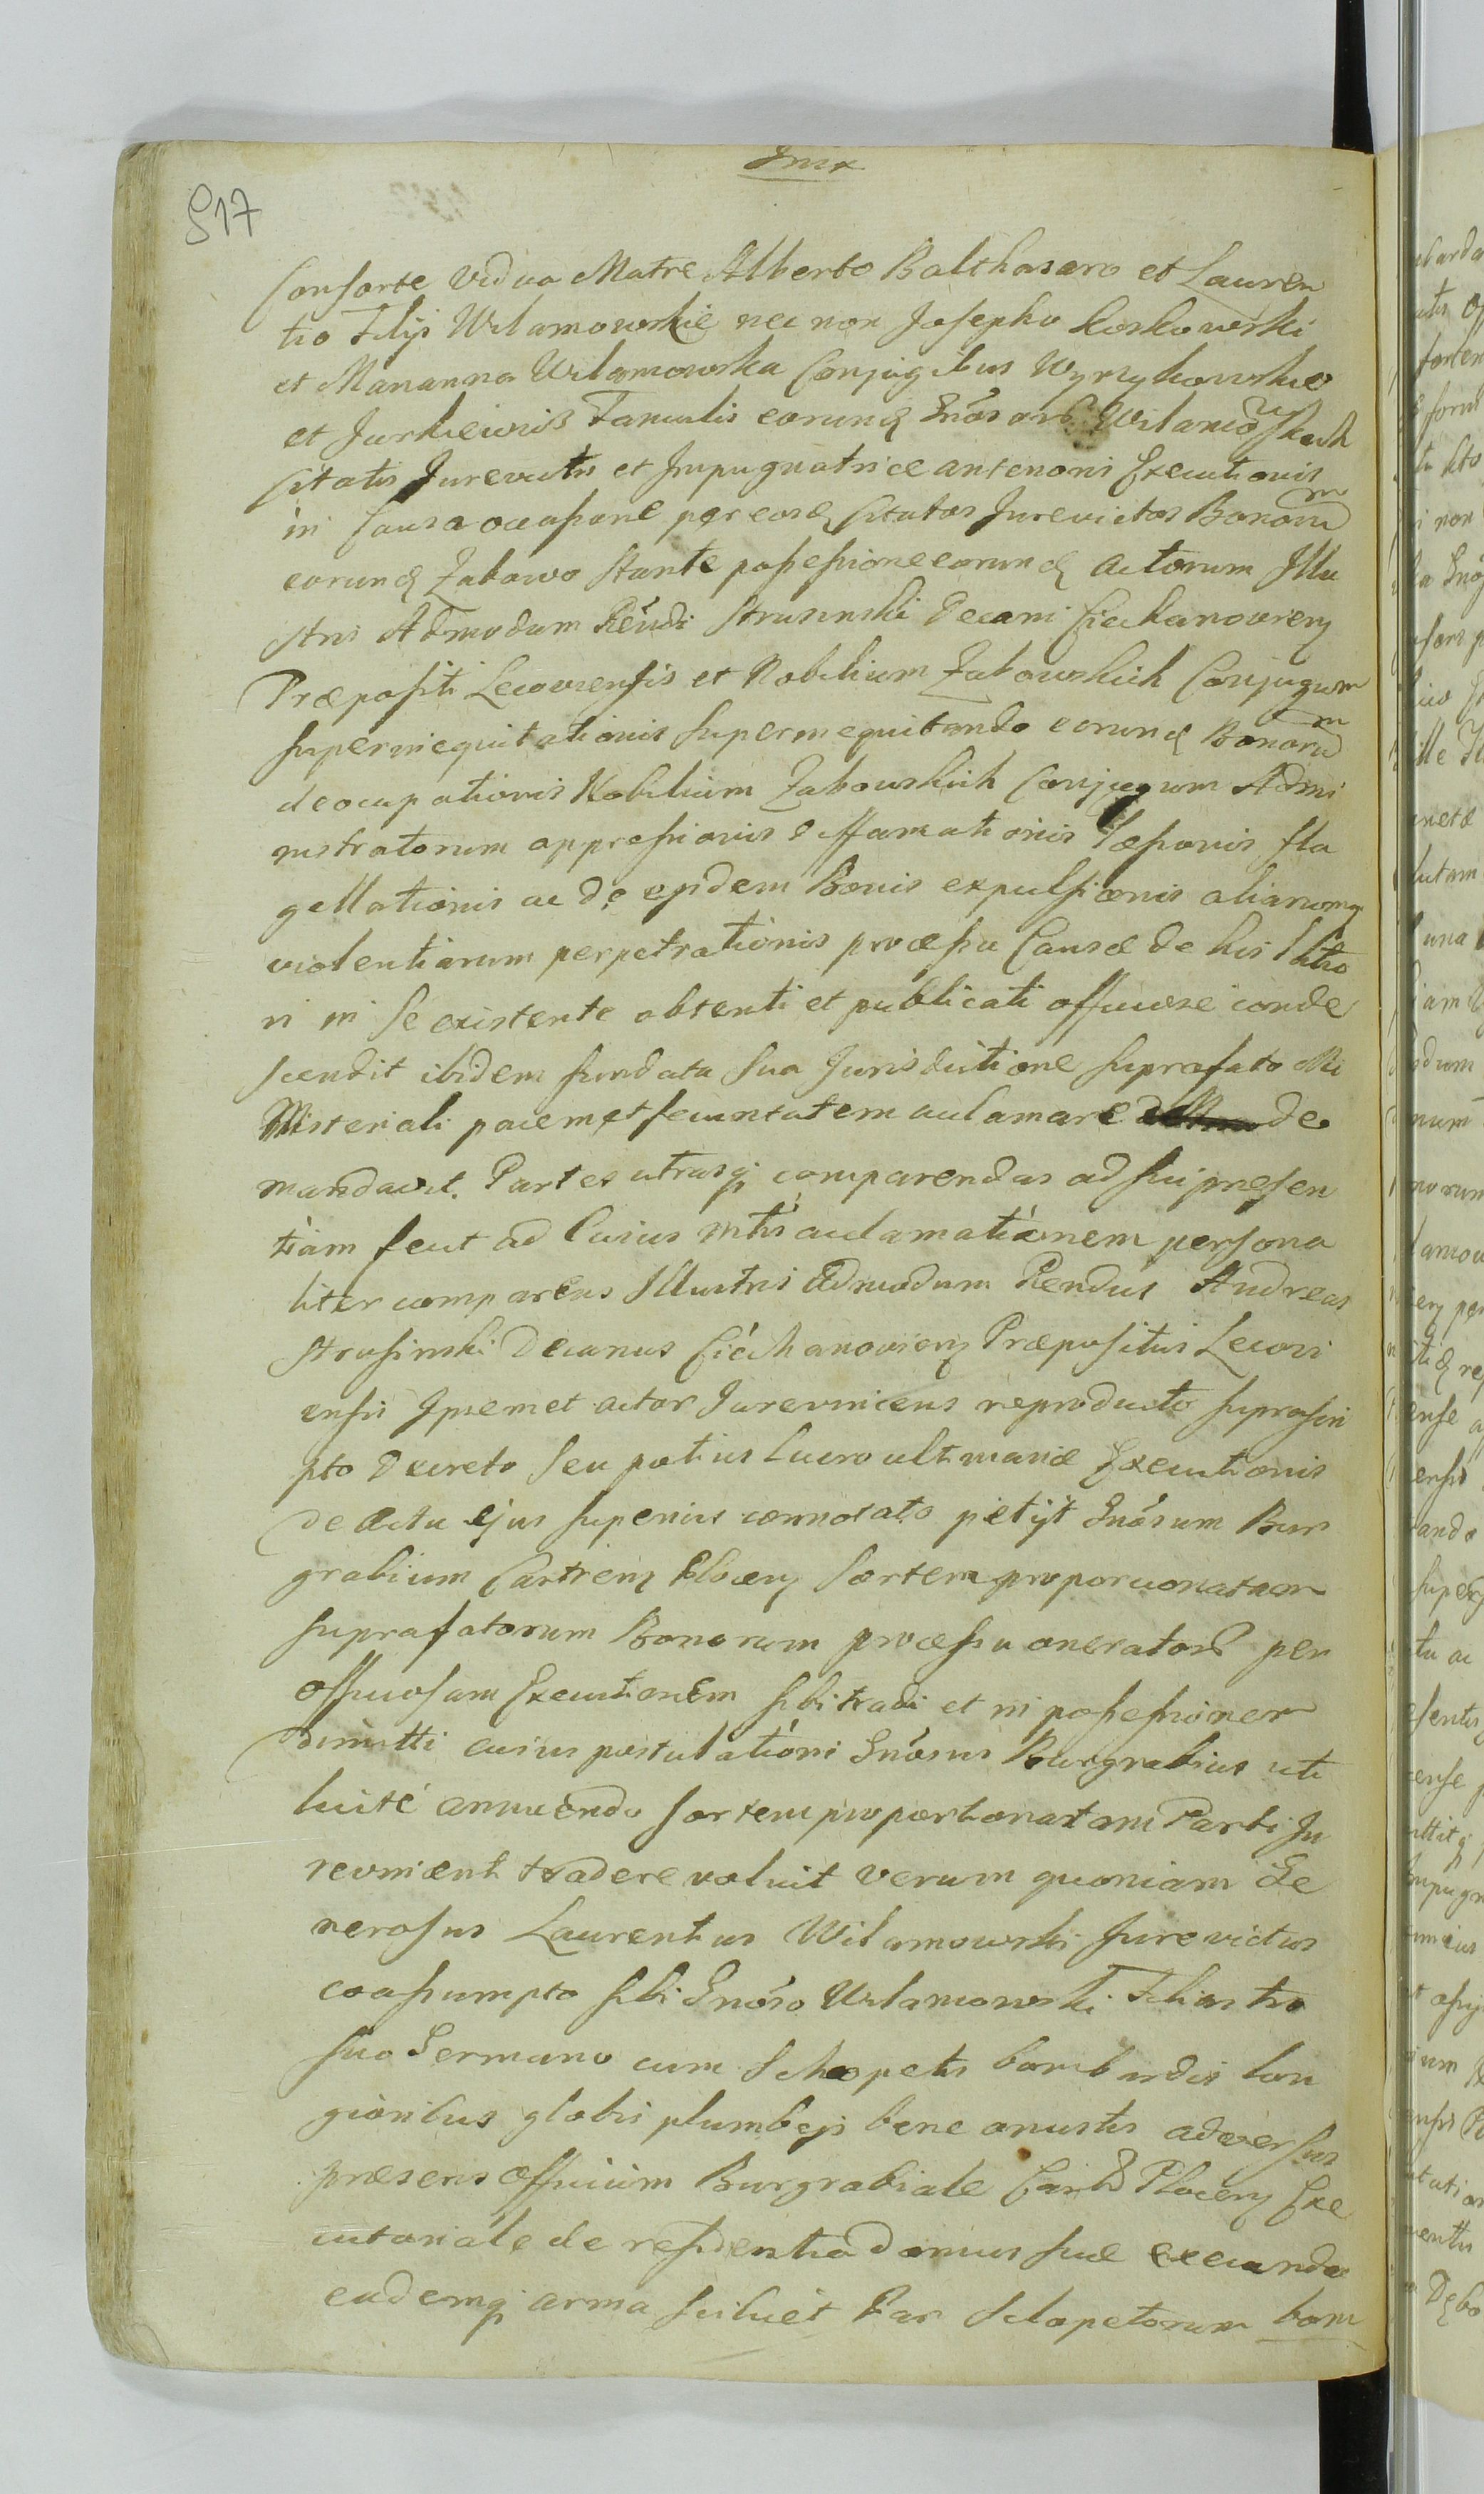 517
Consorte Vidua Matre Alberto Balthasaro et Lauren
tio Filijs Wilamowskie nec non Josepho Koskowski
et Marianna Wilamowska Conjugibus Wyrzykowskie
et Jurkiewicz Famulis eorund Gnosor. Wilamowskich
Citatis Jurevictis et Impugnatrice anterioris Executionis
in Causa occasione per eosd Citatos Jurevictos Bonorum
eorund Zabowo Stante possessione eorund Actorum Illu
stris Admodum Rendi Strusinski Decani Ciechanoviens
Præpositi Lecoviensis et Nobilium Zabowskich Conjugum
superinequitationis superinequitando eorund Bonorum
deocupationis Nobilium Zabowskich Conjugum Admi
nistratorum oppressionis diffamationis læsionis fla
gellationis ac de eisdem Bonis expulsionis aliarumq
violentiarum perpetrationis processu Causæ de his latio
ri in se existente obtenti et publicati officiose conde
scendit ibidem fundata sua Jurisdictione suprafato Mi
nisteriali pacem et securitatem aclamare de
mandavit. Partes utrasq comparendas ad sui præsen
tiam fecit ad Cuius mtis aclamationem persona
liter comparens Illustris Admodum Rendus Andreas
Strusinski Decanus Ciechanoviens Præpositus Lecovi
ensis Ipsemet actor Jurevincens reproducto suprascri
pto Decreto seu potius lucro ultimariæ Executionis
de Actu ejus superius connotato petijt Gnosum Bur
grabium Castrens Plocens Sortem proporcionatam
suprafatorum Bonorum processu onerator per
officiosam Executionem sibi tradi et in possessionem
dimitti cuius postulationi Gnosus Burgrabius uti
licite annuendo sortem proportionatam Parti Ju
revincenti tradere voluit verum quoniam Ge
nerosus Laurentius Wilamowski Jurevictus
coassumpto sibi Gnoso Wilamowski Filiastro
suo Germano cum Sclopetis bombardis lon
gioribus globis plumbeis bene onustis adversus
præsens Officium Burgrabiale Castr Plocens Exe
cutoriale de residentia domus suæ exeundo
eademq arma scilicet Par Sclopetorum bom